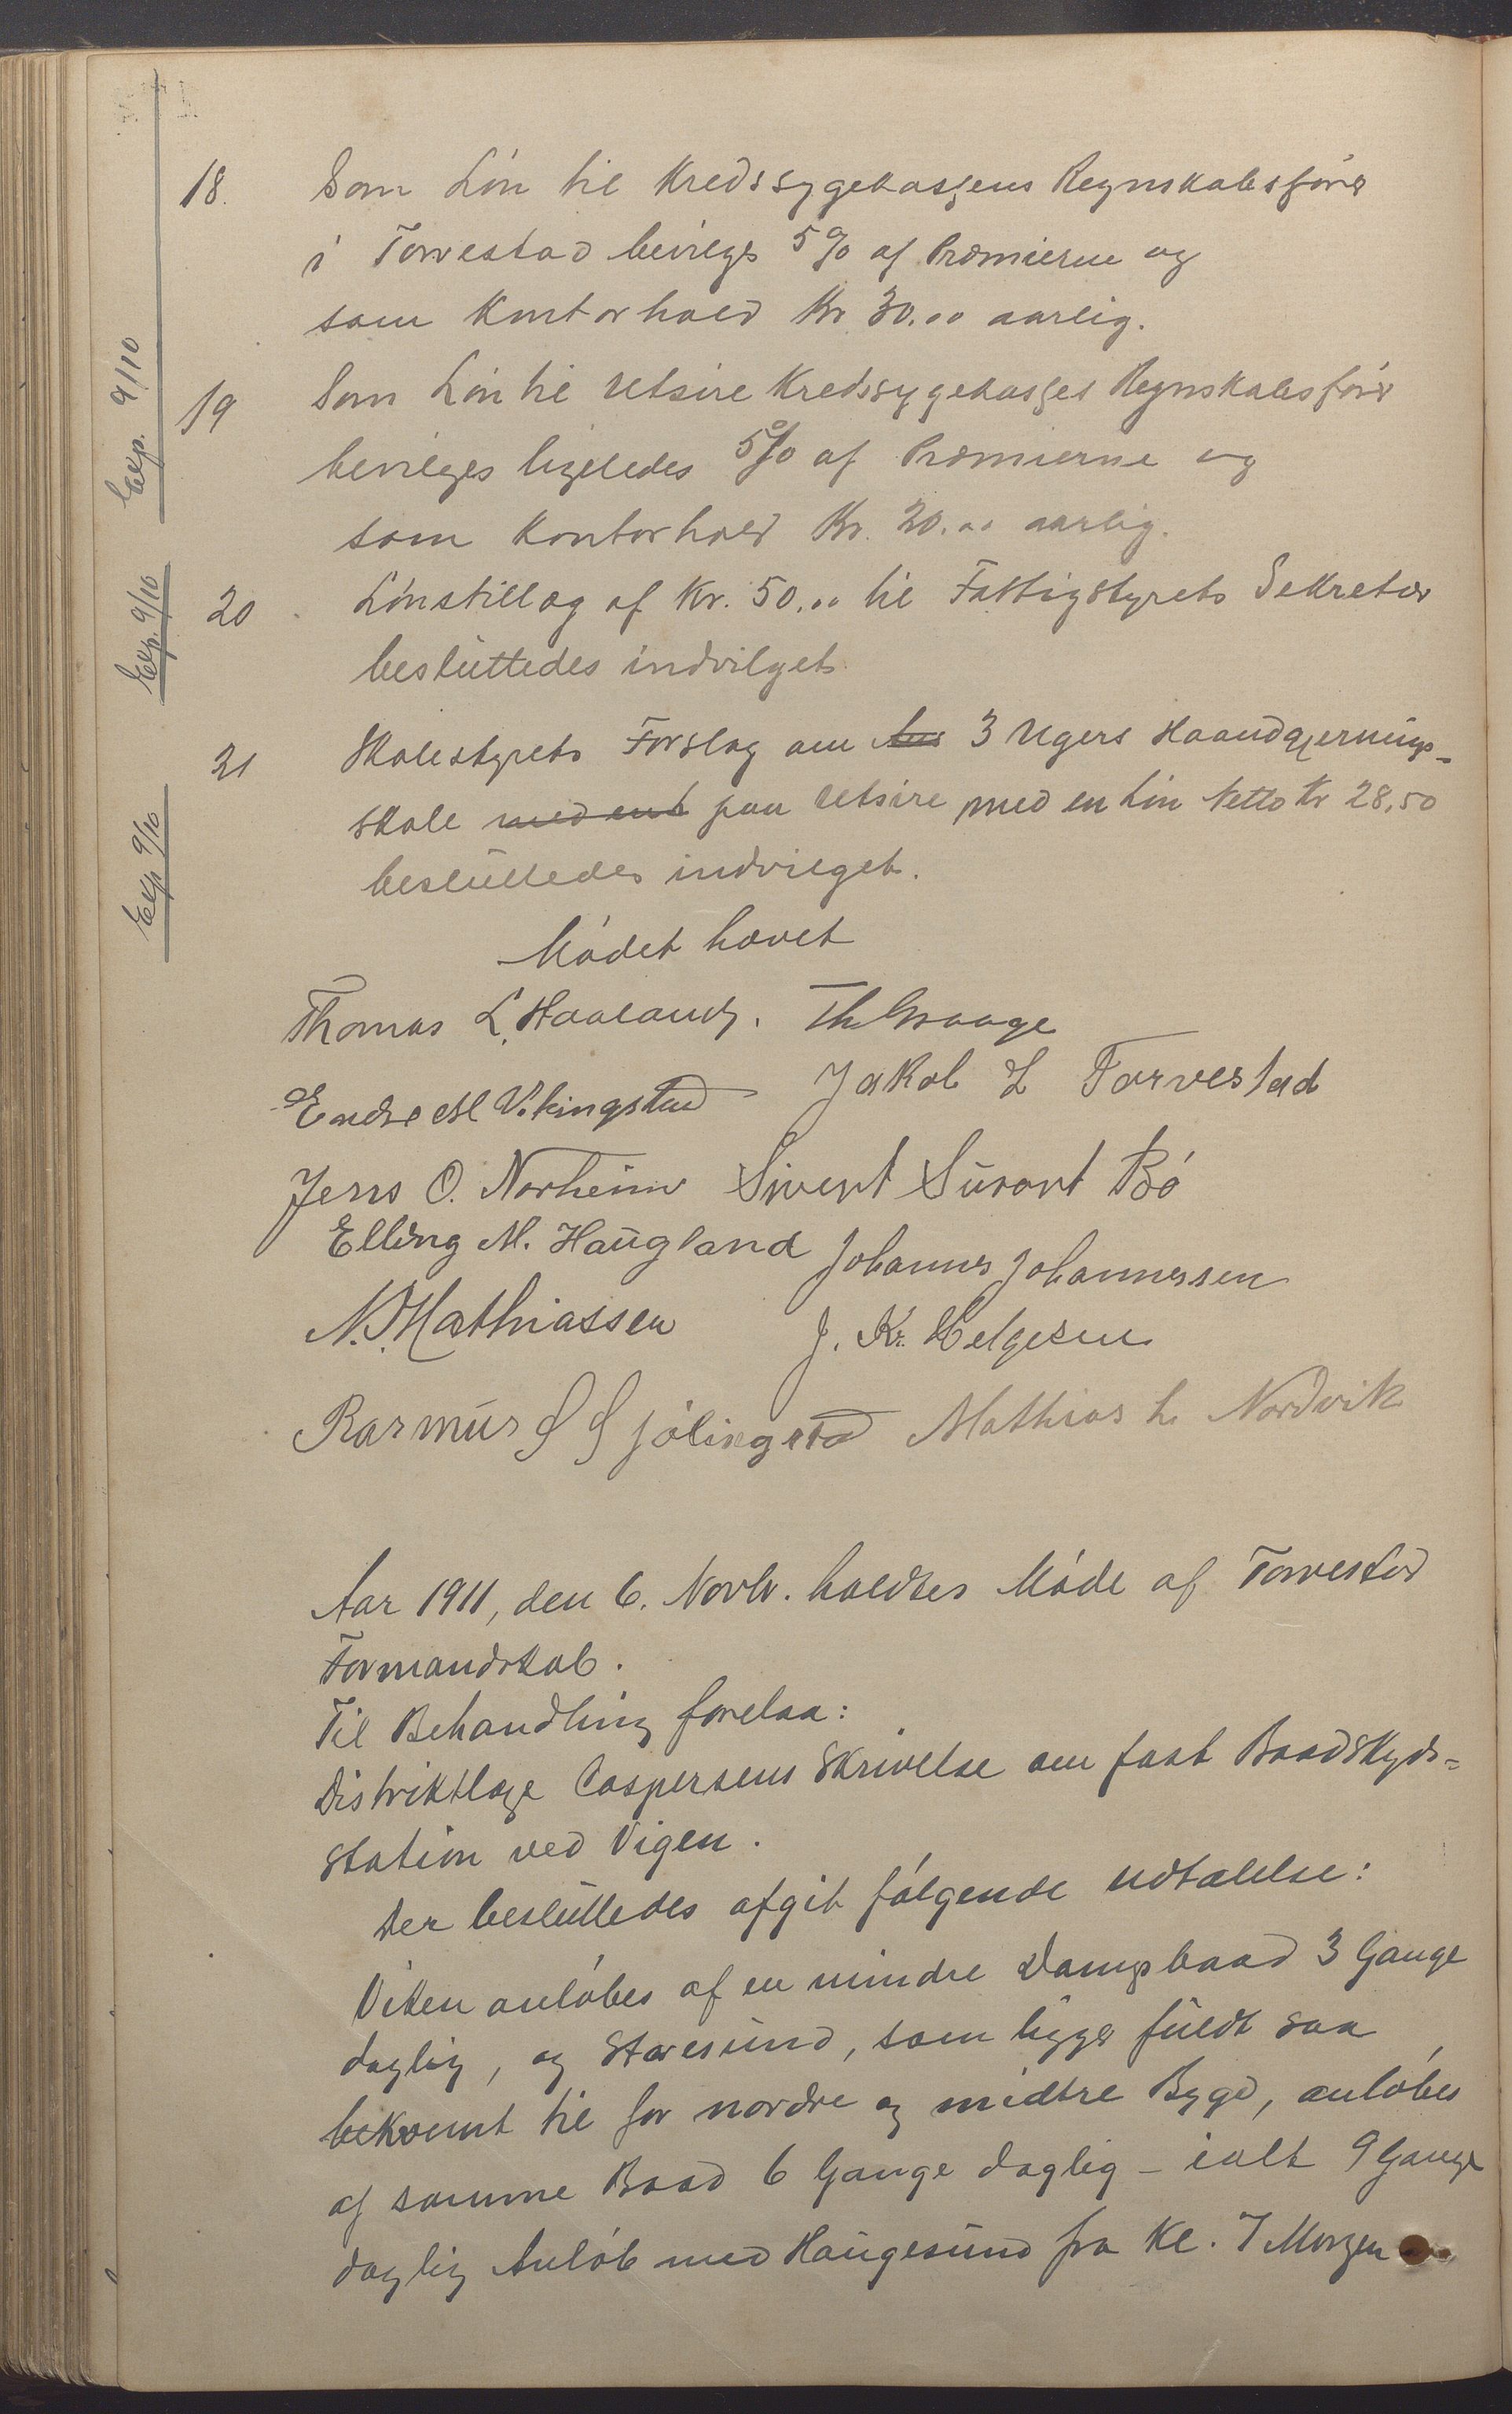 18. Som Løn til Kredssygekassens Regnskabsfører
i Torvestad bevilges 5% af Præmierne og
som Kontorhold Kr. 30.00 aarlig.
Exp. 9/10
19 Som Løn til Utsire Kredssygekasses Regnskabsfører
bevilges ligeledes 5% af Præmierne og
som Kontorhold Kr. 20.00 aarlig.
Exp. 9/10
20 Lønstillæg af Kr. 50.00 til Fattigstyrets Sekretær
besluttedes indvilget
Exp 9/10
21 Skolestyrets Forslag om 3 Ugers Haandgjernings-
skole med ent paa Utsire med en Løn Netto Kr 28,50
besluttedes indvilget.
Mødet hævet
Thomas L. Haaland. Th Waage
Endre M Vikingstad Jakob L Torvestad
Jens O. Norheim Sivert Sivert Bø
Elling M. Haugland Johannes Johannessen
N. Mathiassen J. Kr. Helgesen
Rasmus S Sjølingstad Mathias L. Nordvik
Aar 1911, den 6. Novbr. holdtes Møde af Torvestad
Formandskab.
Til Behandling forelaa:
Distriktlæge Caspersens Skrivelse om fast Baadskyds-
station ved Vigen.
Der besluttedes afgit følgende Udtalelse:
Viken anløbes af en mindre Dampbaad 3 Gange
daglig, og Storesund, som ligger fuldt saa
bekvemt til for nordre og midtre Bygd, anløbes
af samme Baad 6 Gange daglig – ialt 9 Gange
daglig Anløb med Haugesund fra Kl. 7 Morgen